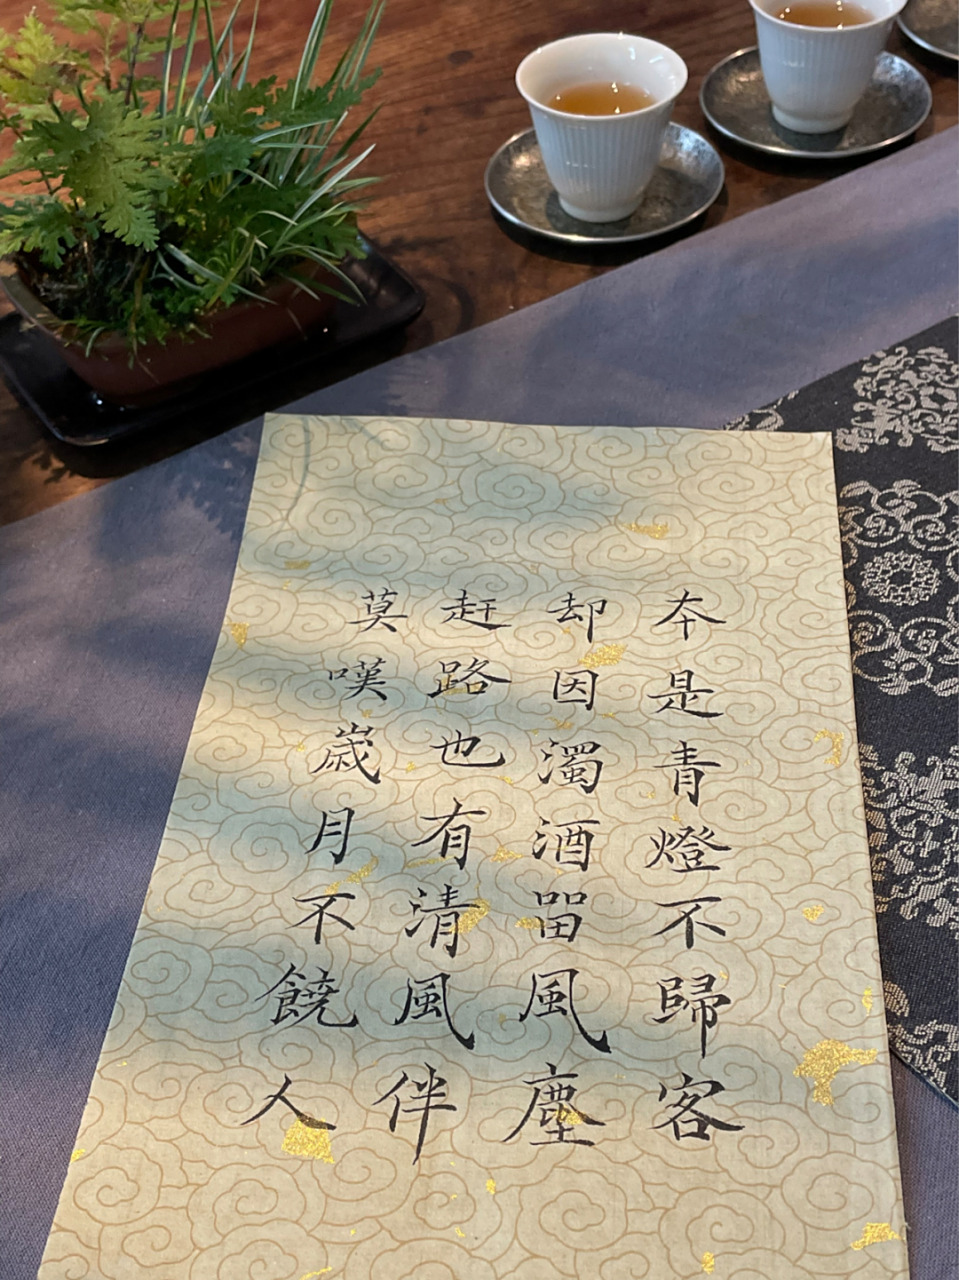 本是青燈不歸客
却因濁酒畱風塵
赶路也有清風伴
莫嘆歲月不饒人